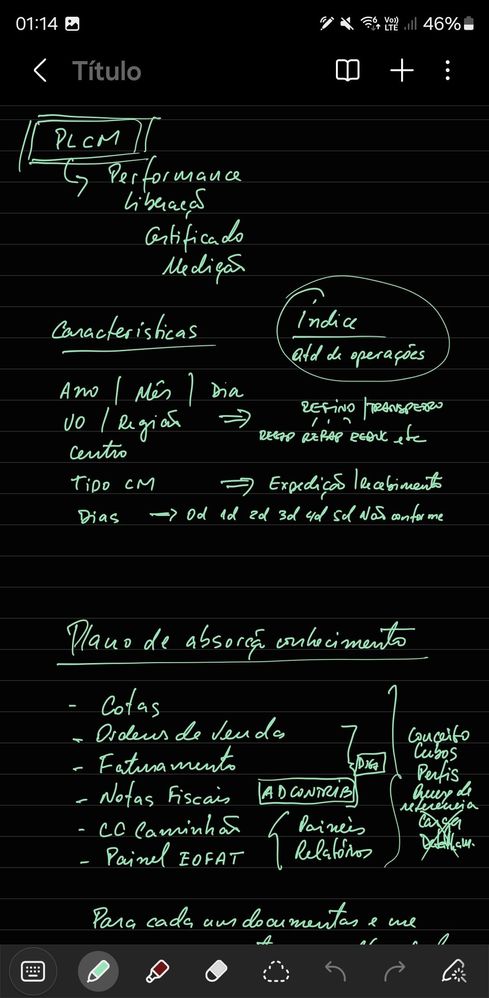 01:14
46%
Título
PLCM
Performance
Liberação
Certificado
Medição
Características
Índice
qtd de operações
Ano / Mês / Dia
UO / Região ⇒ REFINO / TRANSPETRO
REGAP REPAR etc
Centro
Tipo CM ⇒ Expedição / Recebimento
Dias → 0d 1d 2d 3d 4d 5d Não conforme
Plano de absorção conhecimento
- Cotas
- Ordens de Vendas
- Faturamento
- Notas Fiscais
- CC Caminhão
- Painel EOFAT
AD CONTRIB
Painéis
Relatórios
Conceito
Cubos
Perfis
referencia
Carga
Para cada um documentos e me